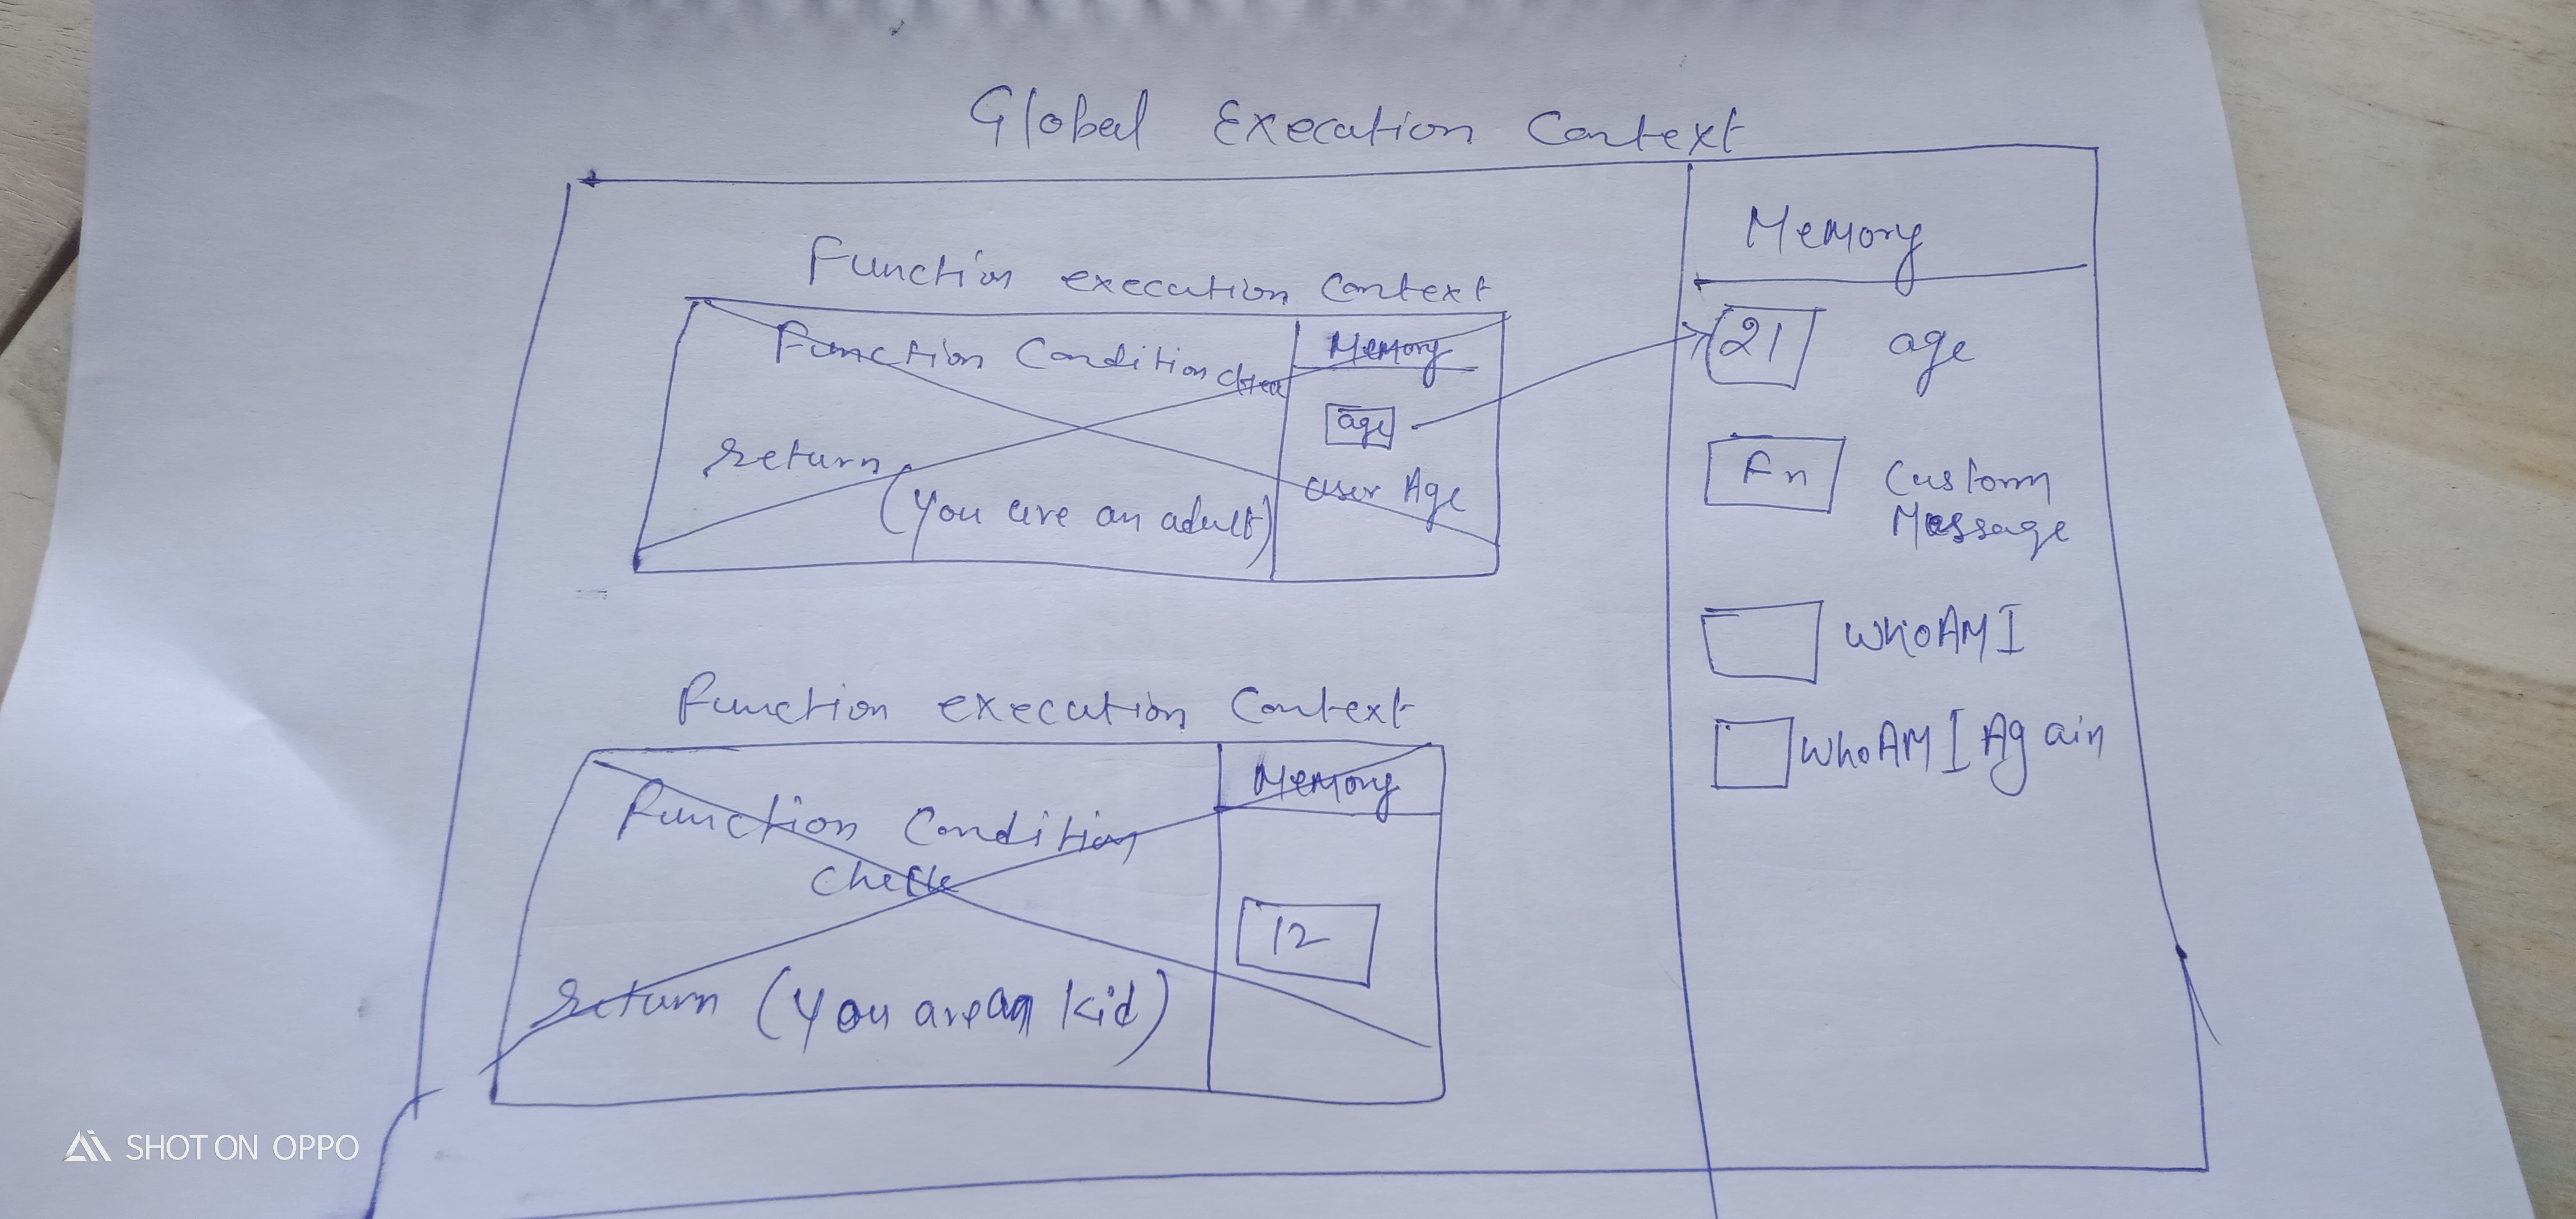 Global Execution Context
Function execution Context
Function Condition
Memory
age
return
(You are an adult)
user Age
Function execution Context
Function Condition
Check
Memory
12
return (You are an kid)
Memory
21 age
Fn Custom
Message
WhoAM I
WhoAM I Again
SHOT ON OPPO